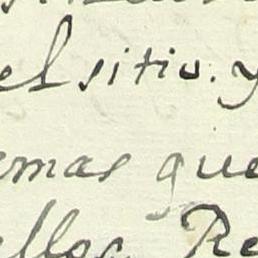 el sitio. y
emas que
ellos. Re